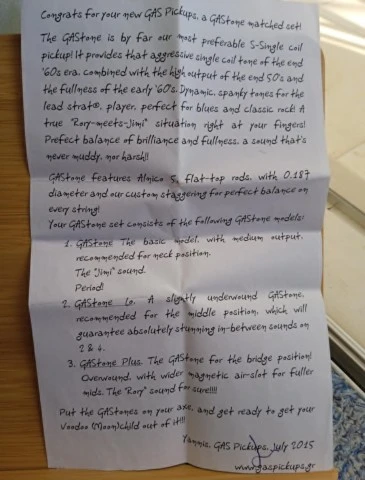 Congrats for your new GAS Pickups, a GAStone matched set!
The GAStone is by far our most preferable S-Single coil
pickup! It provides that aggressive single coil tone of the end
'60s era, combined with the high output of the end 50's and
the fullness of the early '60s. Dynamic, spanky tones for the
lead strat®, player, perfect for blues and classic rock! A
true "Rory-meets-Jimi" situation right at your fingers!
Prefect balance of brilliance and fullness, a sound that's
never muddy, nor harsh!!
GAStone features Alnico 5, flat-top rods, with 0.187
diameter and our custom staggering for perfect balance on
every string!
Your GAStone set consists of the following GAStone models:
1. GAStone The basic model, with medium output,
recommended for neck position.
The "Jimi" sound.
Period!
2. GAStone Lo. A slightly underwound GAStone,
recommended for the middle position, which will
guarantee absolutely stunning in-between sounds on
2 & 4.
3. GAStone Plus. The GAStone for the bridge position!
Overwound, with wider magnetic air-slot for fuller
mids. The "Rory" sound for sure!!!!
Put the GAStones on your axe, and get ready to get your
Voodoo (Moon)child out of it!!!
Yannis, GAS Pickups, July 2015
www.gaspickups.gr